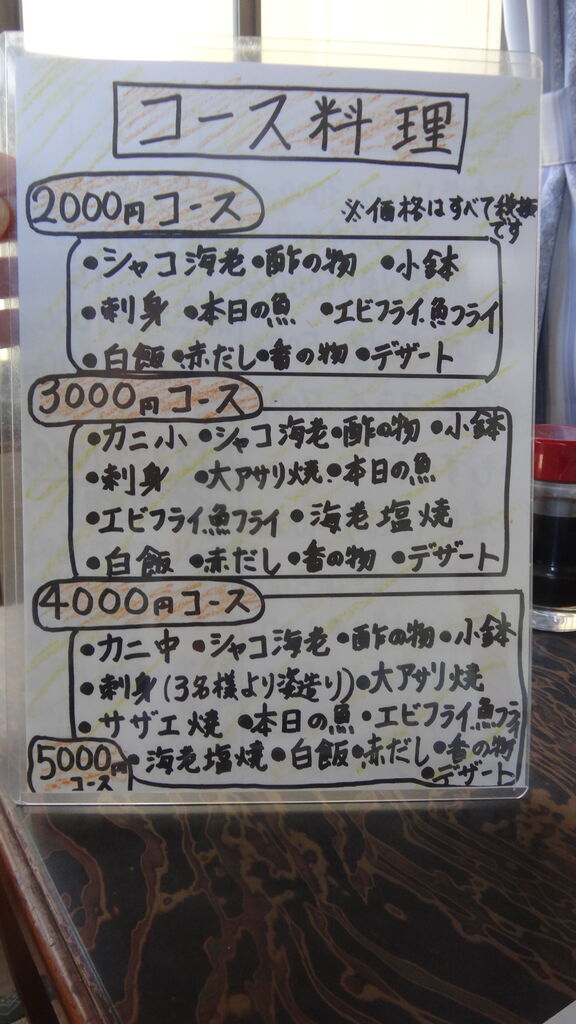 コース料理
2000円コース
※価格はすべて税抜
です
•シャコ海老•酢の物 •小鉢
•刺身 •本日の魚 •エビフライ.魚フライ
•白飯•赤だし•香の物•デザート
3000円コース
•カニ小 •シャコ海老•酢の物 •小鉢
•刺身 •大アサリ焼•本日の魚
•エビフライ.魚フライ •海老塩焼
•白飯 •赤だし•香の物 •デザート
4000円コース
•カニ中 •シャコ海老 •酢の物•小鉢
•刺身(3名様より姿造り)•大アサリ焼
•サザエ焼 •本日の魚 •エビフライ.魚フライ
•海老塩焼 •白飯 •赤だし•香の物
•デザート
5000円
コース